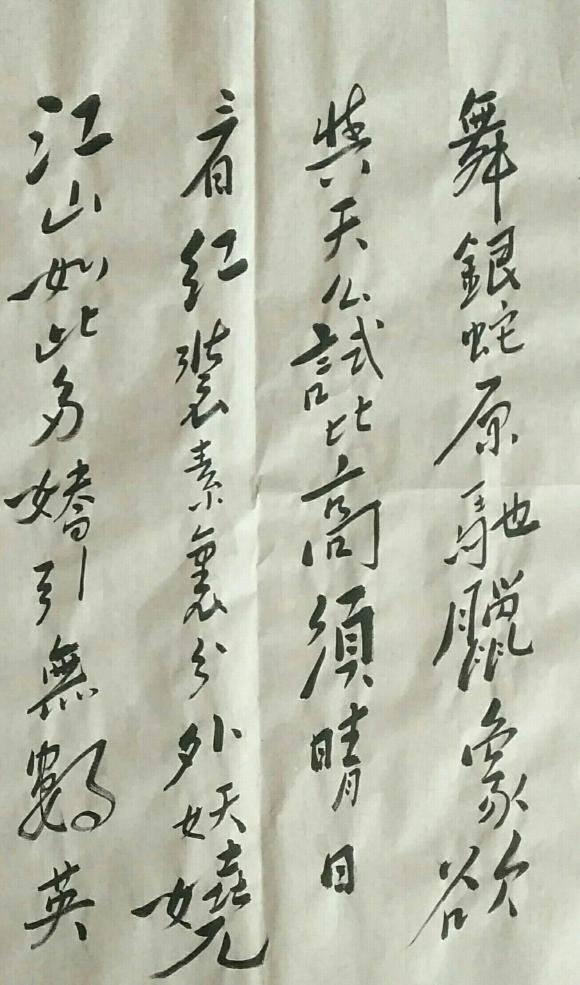 舞銀蛇原馳臘象欲
與天公試比高須晴日
看紅裝素裹分外妖嬈
江山如此多嬌引無數英